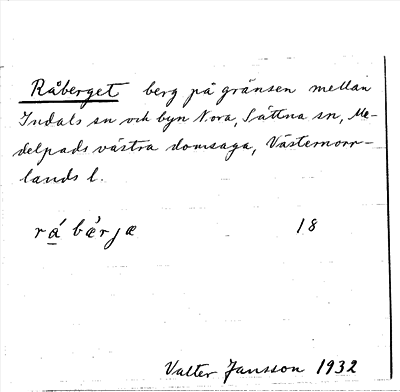 Råberget berg på gränsen mellan
Indals sn och byn Nora, Sättna sn, Me-
delpads västra domsaga, Västernorr-
lands l.
rá bær̓jæ 18
Valter Jansson 1932